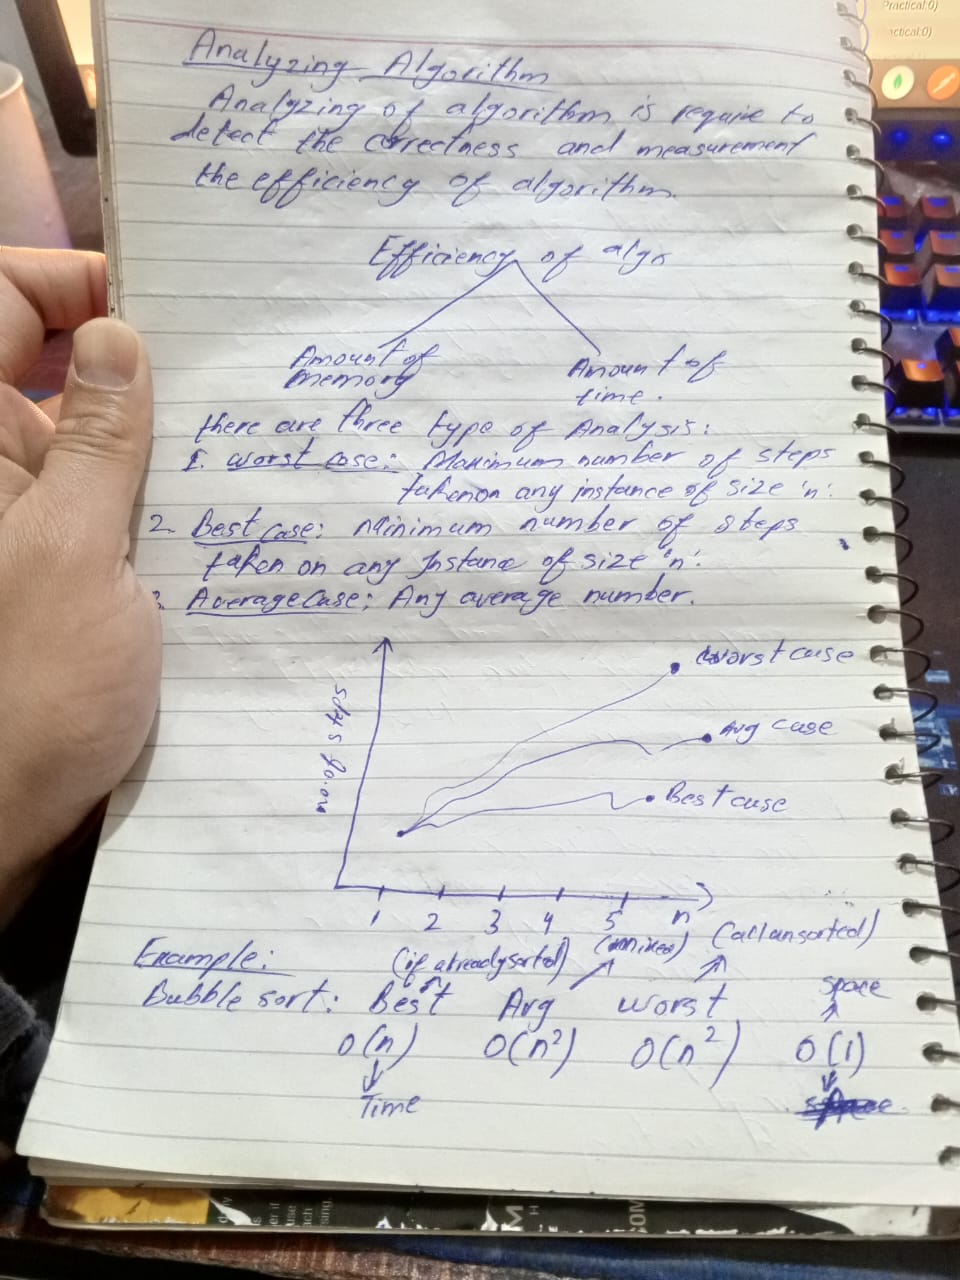 Practical:0)
actical:0)
Analyzing Algorithm
Analyzing of algorithm is require to
detect the correctness and measurement
the efficiency of algorithm.
Efficiency of algo
Amount of
memory
Amount of
time.
there are three type of Analysis:
1. worst case: Maximum number of steps
taken on any instance of size 'n'.
2. Best case: Minimum number of steps
taken on any Instance of size 'n'.
3. Average case: Any average number.
no. of steps
Worst case
Avg case
Best case
1 2 3 4 5 n
Example: (if already sorted) (mixed) (all unsorted)
space
Bubble sort: Best Avg worst
O(n) O(n²) O(n²) O(1)
Time